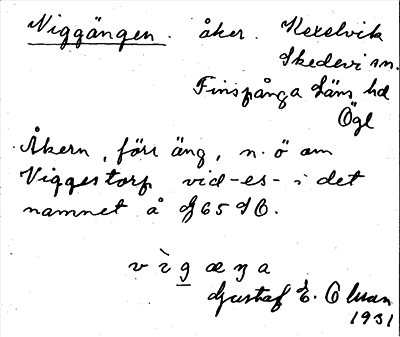 Viggängen. åker. Kexelvik
Skedevi sn.
Finspånga Läns hd
Ögl
Åkern, förr äng, n. ö om
Viggestorp vid -es- i det
namnet å J 65 SO.
v ì g æŋa
Gustaf E. Olsson
1931